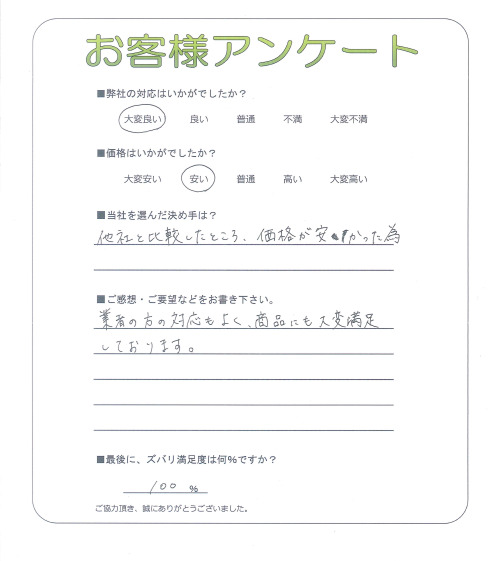 お客様アンケート
■弊社の対応はいかがでしたか？
大変良い 良い 普通 不満 大変不満
■価格はいかがでしたか？
大変安い 安い 普通 高い 大変高い
■当社を選んだ決め手は？
他社と比較したところ、価格が安かった為
■ご感想・ご要望などをお書き下さい。
業者の方の対応もよく、商品にも大変満足
しております。
■最後に、ズバリ満足度は何％ですか？
100 ％
ご協力頂き、誠にありがとうございました。